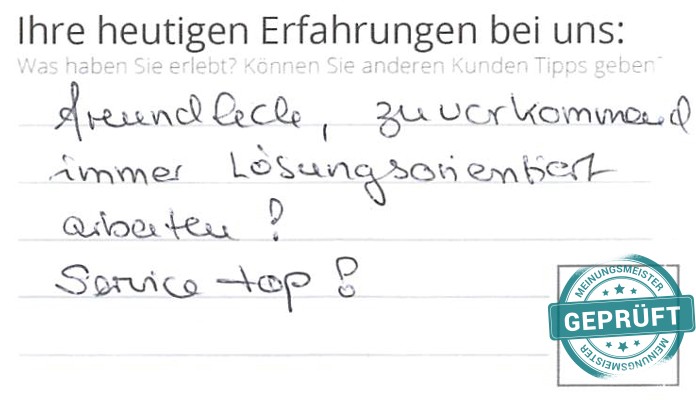 Ihre heutigen Erfahrungen bei uns:
Was haben Sie erlebt? Können Sie anderen Kunden Tipps geben
freundlich, zuvorkommend
immer Lösungsorientiert
arbeiten!
Service top!
MEINUNGSMEISTER
GEPRÜFT
MEINUNGSMEISTER